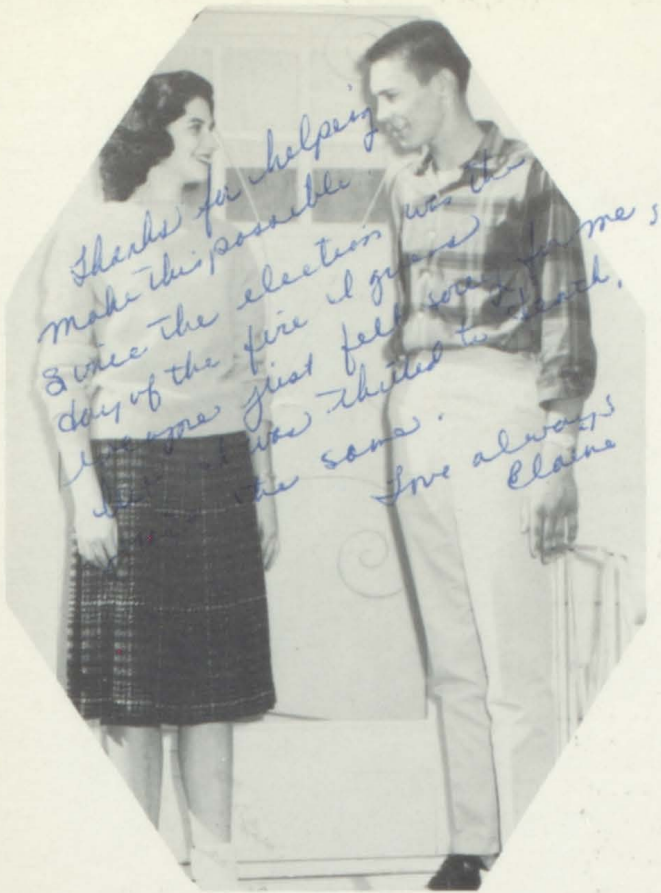 Thanks for helping
make this possible.
Since the election was the
day of the fire I guess
everyone just felt sorry for me,
but I was thrilled to death,
just the same.
Love always
Elaine